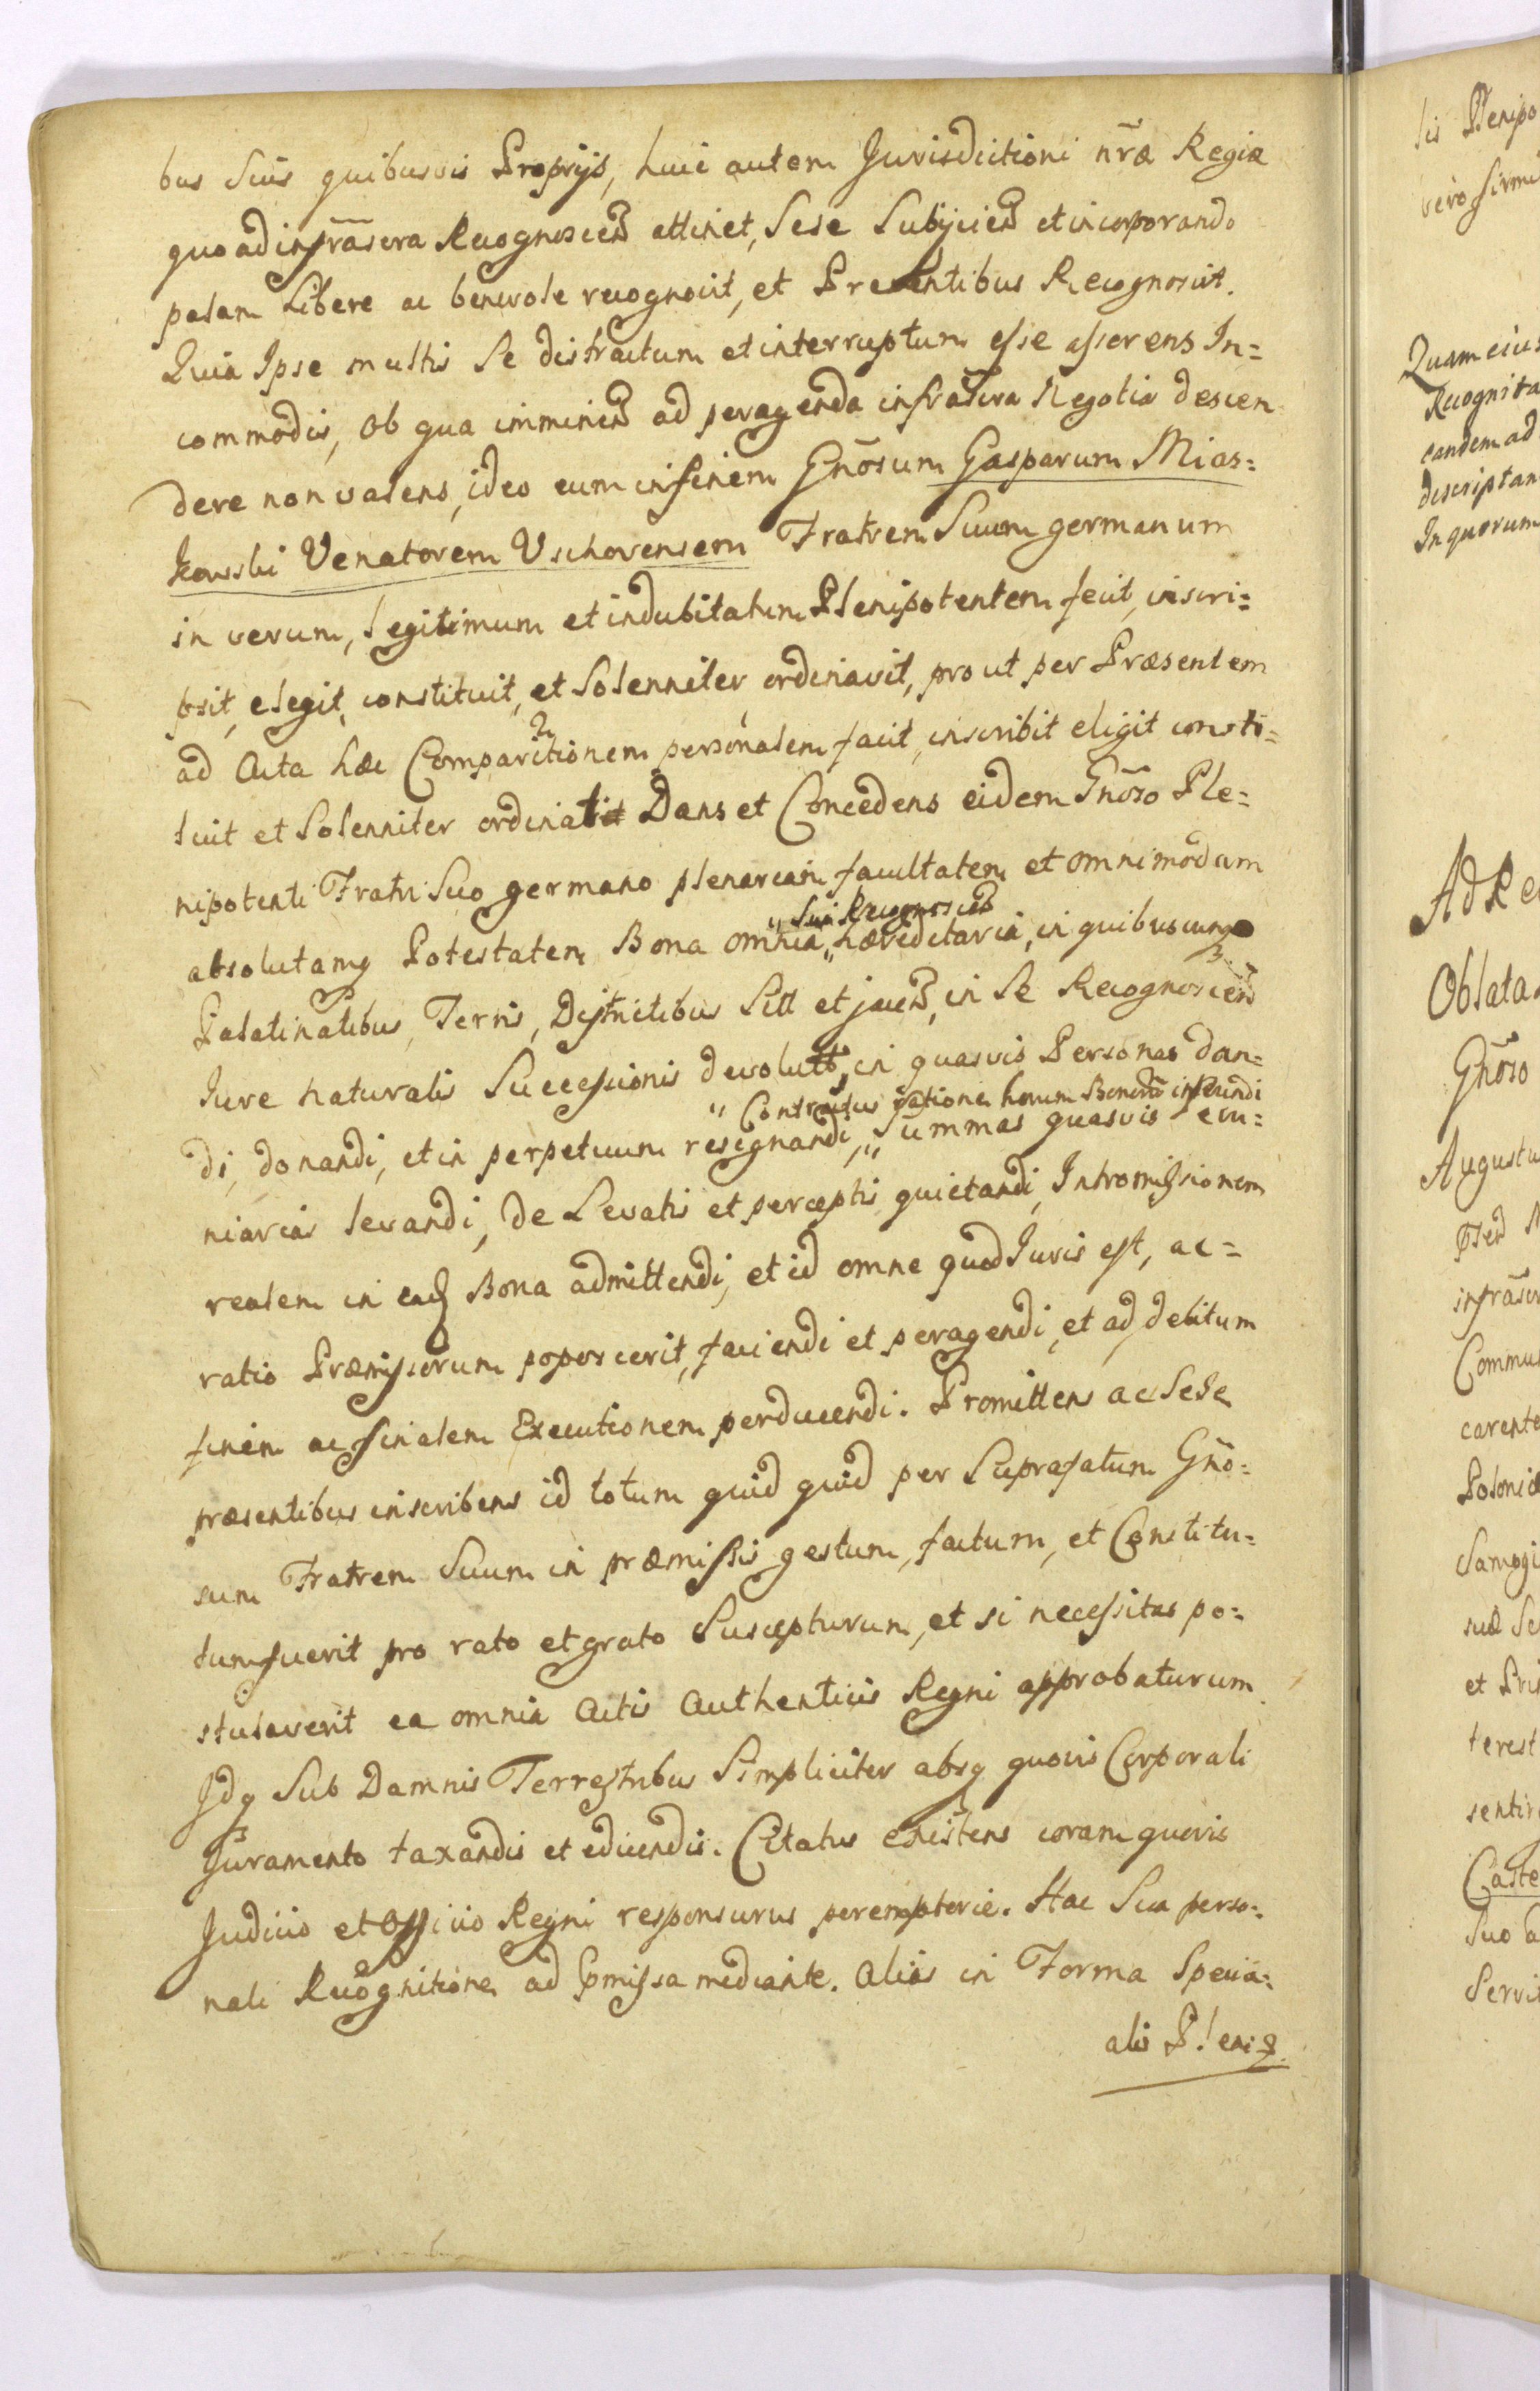 bus Suis quibusvis Proprijs, huic autem Jurisdictioni nr̃æ Regiæ
quo ad infrãscra Recognoscend attinet, Sese Subijciend et incorporando
palam Libere ac benevole recognovit, et Presentibus Recognoscit.
Quia Ipse multis Se distractum et interruptum esse asserens In=
commodis, ob qua imminend ad peragenda infrãscra Negotia descen
dere non valens, ideo eum in finem Gnõsum Gasparum Mias=
kowski Venatorem Vschovensem Fratrem Suum germanum
in verum, legitimum et indubitatum Plenipotentem fecit, inscri=
psit, elegit, constituit, et Solenniter ordinavit, prout per Præsentem
ad Acta hæc Comparitionem personalem facit, inscribit eligit consti=
tuit et Solenniter ordinat Dans et Concedens eidem Gnõso Ple=
nipotenti Fratri Suo germano plenariam facultatem et omnimodam
" Sui Recognoscend
absolutamq Potestatem Bona omnia " hæreditaria, in quibuscunq
Palatinatibus, Terris, Districtibus Sitt et jacend, in Se Recognoscend
Iure naturalis Successionis devolutt, in quasvis Personas dan=
" Contractus ratione horum Bonorũ ineundi
di, donandi, et in perpetuum resignandi, " Summas quasvis pecu=
niarias levandi, de Levatis et perceptis quietandi, Intromissionem
realem in eadẽ Bona admittendi, et id omne quod Iuris est, ac=
ratio Præmissorum poposcerit, faciendi et peragendi, et ad debitum
finem ac finalem Executionem perducendi. Promittens ac Sese
præsentibus inscribens id totum quid quid per Suprafatum Gnõ=
sum Fratrem Suum in præmissis gestum, factum, et Constitu=
tum fuerit pro rato et grato Suscepturum, et si necessitas po=
stulaverit ea omnia Actis Authenticis Regni approbaturum.
Idq Sub Damnis Terrestribus Simpliciter absq quovis Corporali
Juramento taxandis et edicendis. Citatus existens coram quovis
Judicio et Officio Regni responsurus peremptorie. Hac Sua perso=
nali Recognitione ad pmissa mediante. Alias in Forma Specia=
alis Plenip.
lis Plenipo
vero firmi
Quam eius
Recognita
eandem ad
descriptam
In quorum
Ad Re
Oblata
Gnõso
Augustu
infrãscr
Commu
carente
Poloniæ
Samogi
suæ Se
et Pri
terest
sentir
Caste
Suo
Servi